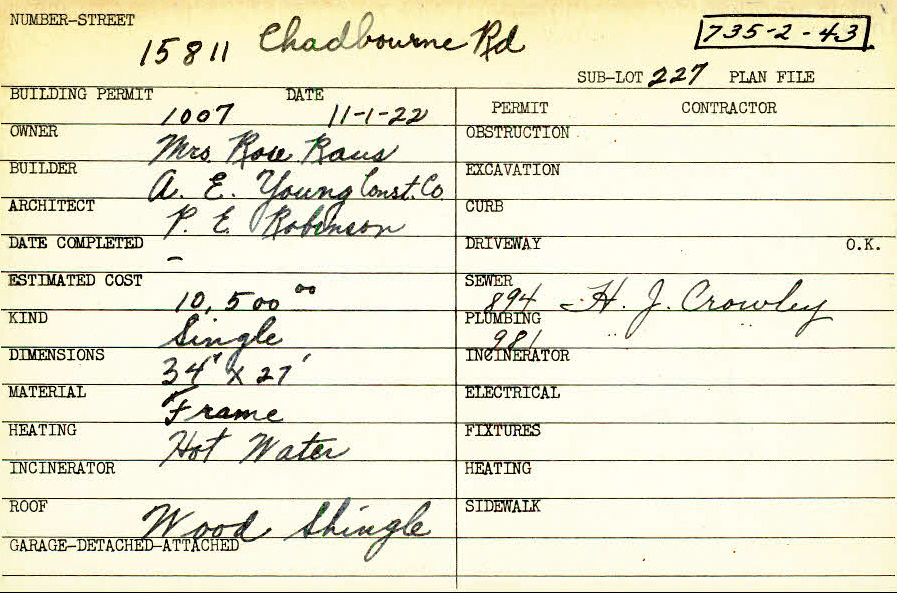 NUMBER-STREET
15811 Chadbourne Rd
735-2-43
SUB-LOT 227 PLAN FILE
BUILDING PERMIT DATE
1007 11-1-22
OWNER
Mrs. Rose Raus
BUILDER
A. E. Young Const. Co.
ARCHITECT
P. E. Robinson
DATE COMPLETED
-
ESTIMATED COST
10,500 00
KIND
Single
DIMENSIONS
34' x 27'
MATERIAL
Frame
HEATING
Hot Water
INCINERATOR
ROOF
Wood Shingle
GARAGE-DETACHED-ATTACHED
PERMIT CONTRACTOR
OBSTRUCTION
EXCAVATION
CURB
DRIVEWAY O.K.
SEWER
894 - H. J. Crowley
PLUMBING
981 " "
INCINERATOR
ELECTRICAL
FIXTURES
HEATING
SIDEWALK